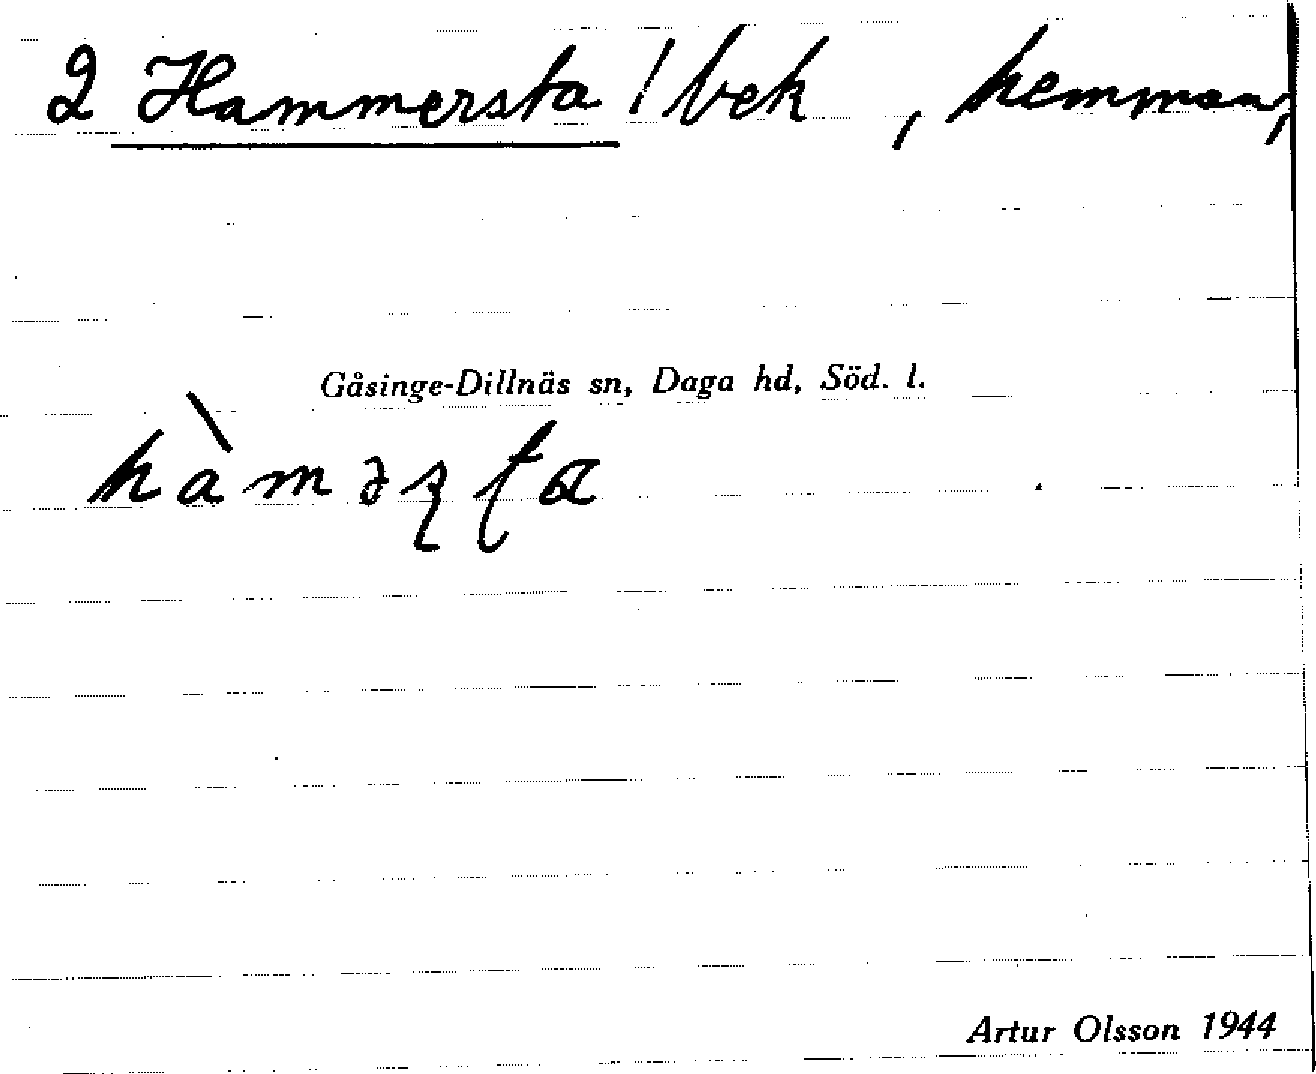 2 Hammersta / bek , hemman,
Gåsinge-Dillnäs sn, Daga hd, Söd. l.
Artur Olsson 1944